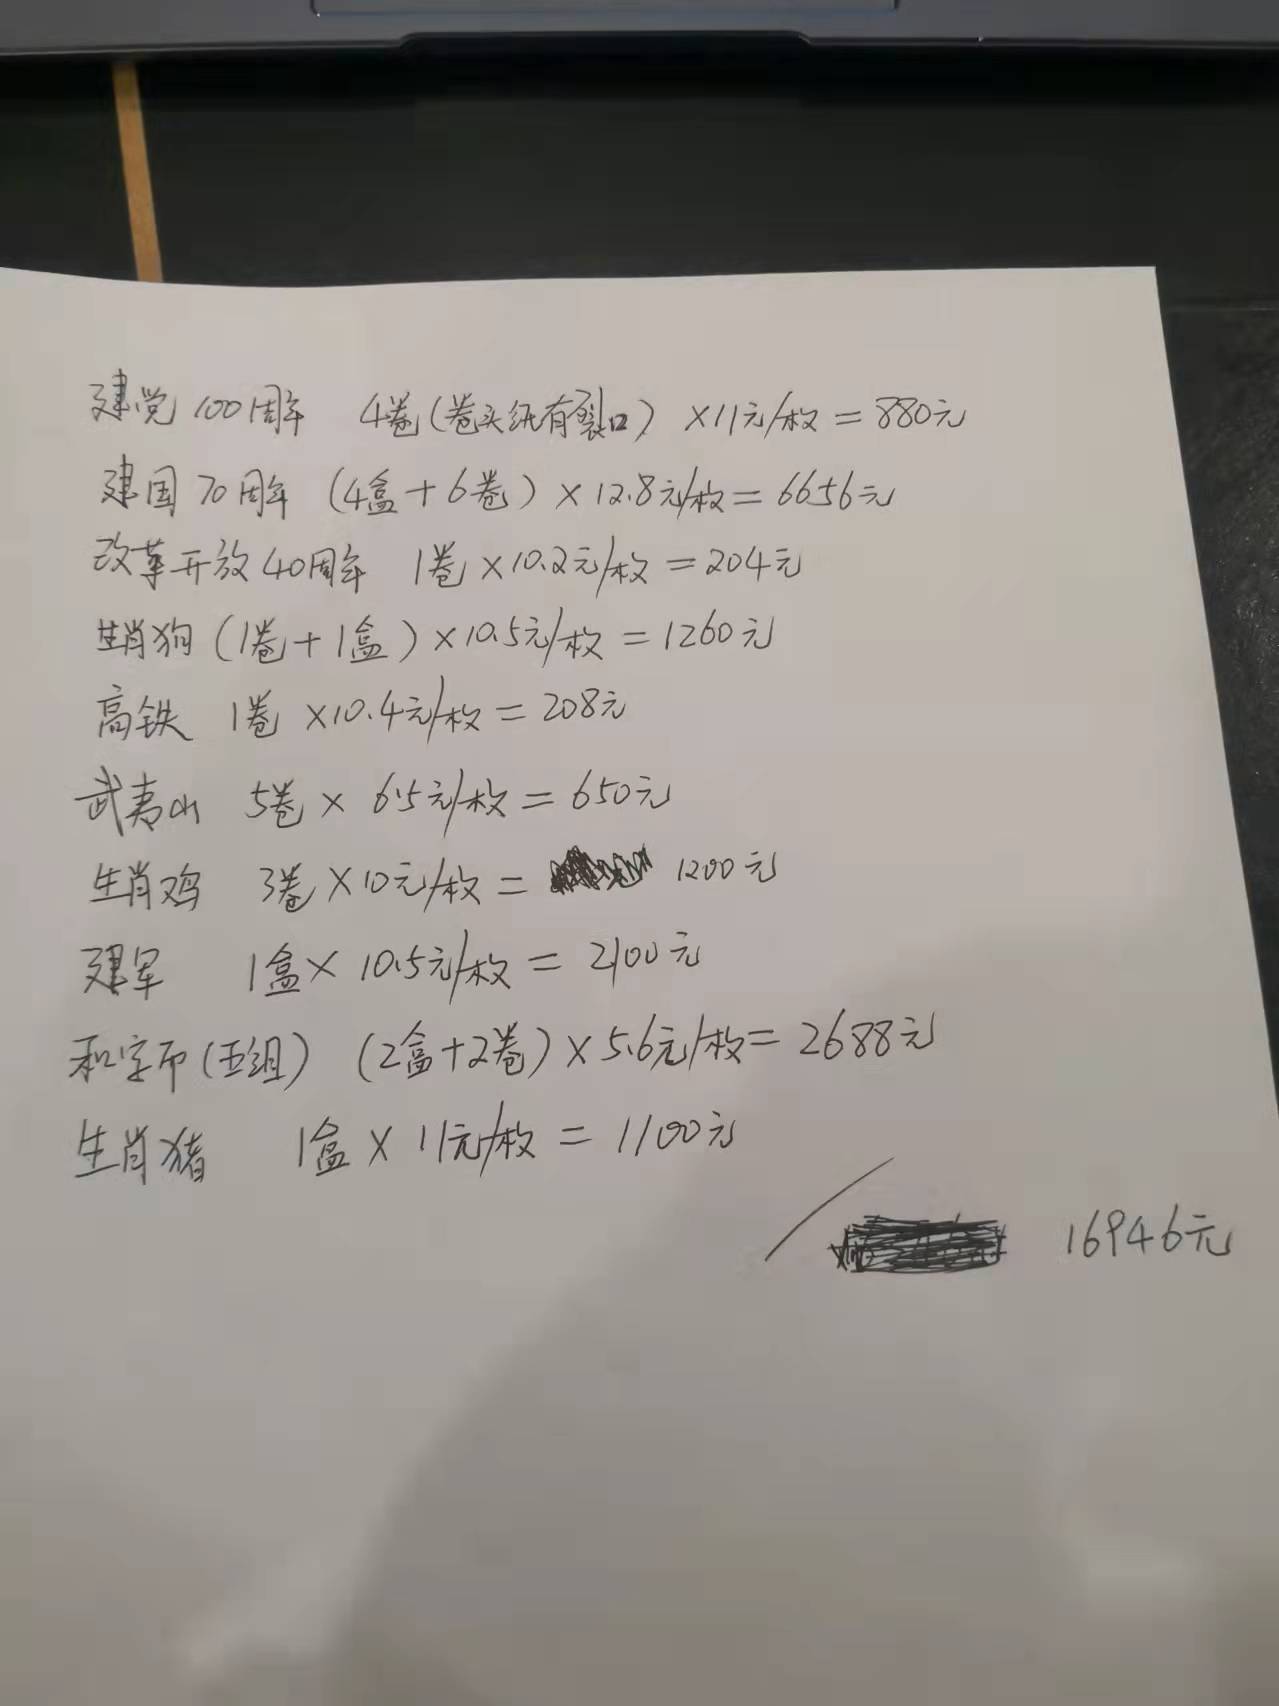 建党100周年 4卷(卷头纸有裂口) ×11元/枚=880元
建国70周年 (4盒+6卷)×12.8元/枚=6656元
改革开放40周年 1卷×10.2元/枚=204元
生肖狗(1卷+1盒)×10.5元/枚=1260元
高铁 1卷×10.4元/枚=208元
武夷山 5卷× 6.5元/枚=650元
生肖鸡 3卷×10元/枚= 1200元
建军 1盒×10.5元/枚=2100元
和字币(五组) (2盒+2卷)×5.6元/枚=2688元
生肖猪 1盒×11元/枚=1100元
16946元